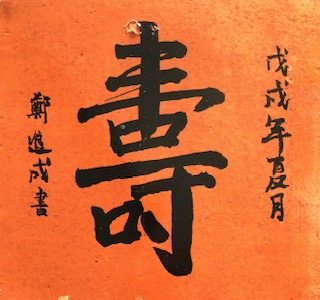 戊戌年夏月
壽
鄭進成書